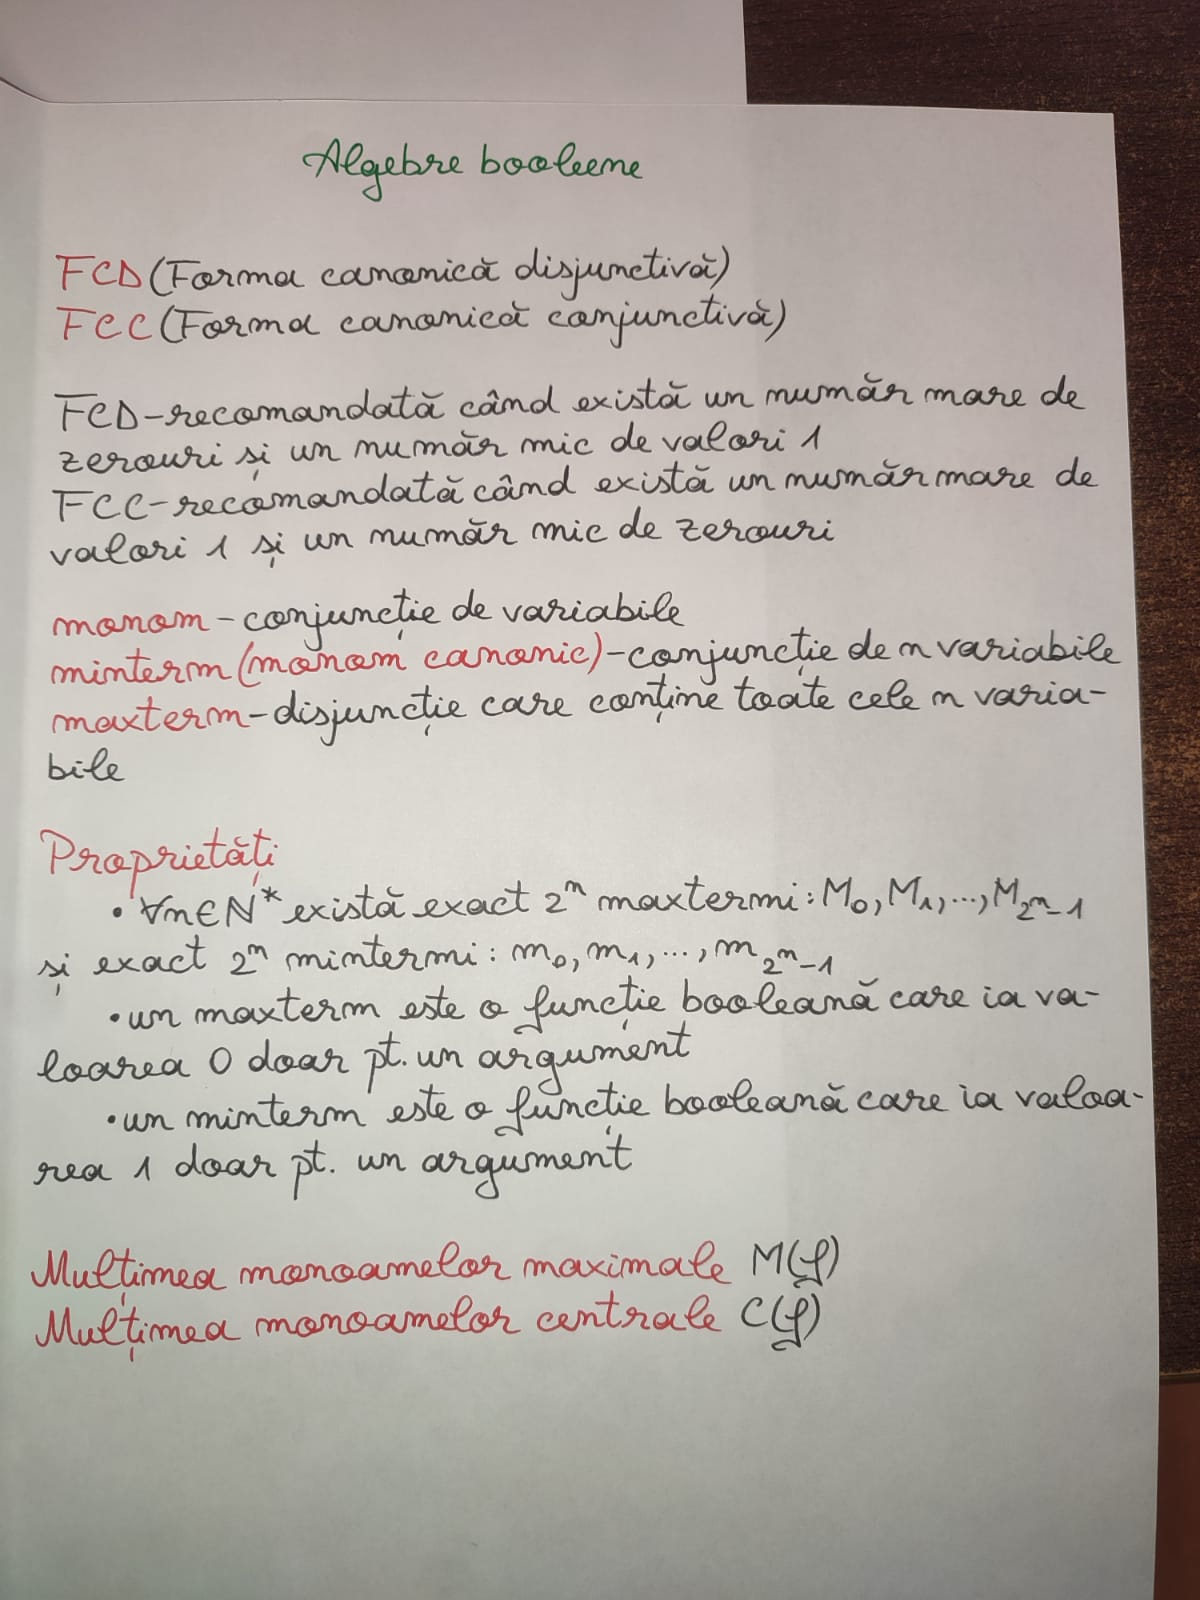 Algebre booleene
FCD (Forma canonică disjunctivă)
FCC (Forma canonică conjunctivă)
FCD-recomandată când există un număr mare de
zerouri și un număr mic de valori 1
FCC-recomandată când există un număr mare de
valori 1 și un număr mic de zerouri
monom - conjuncție de variabile
minterm (monom canonic) - conjuncție de n variabile
maxterm - disjuncție care conține toate cele n varia-
bile
Proprietăți
• ∀n∈N* există exact 2ⁿ maxtermi: M₀, M₁, ..., M_{2ⁿ-1}
și exact 2ⁿ mintermi: m₀, m₁, ..., m_{2ⁿ-1}
• un maxterm este o funcție booleană care ia va-
loarea 0 doar pt. un argument
• un minterm este o funcție booleană care ia valoa-
rea 1 doar pt. un argument
Mulțimea monoamelor maximale M(f)
Mulțimea monoamelor centrale C(f)